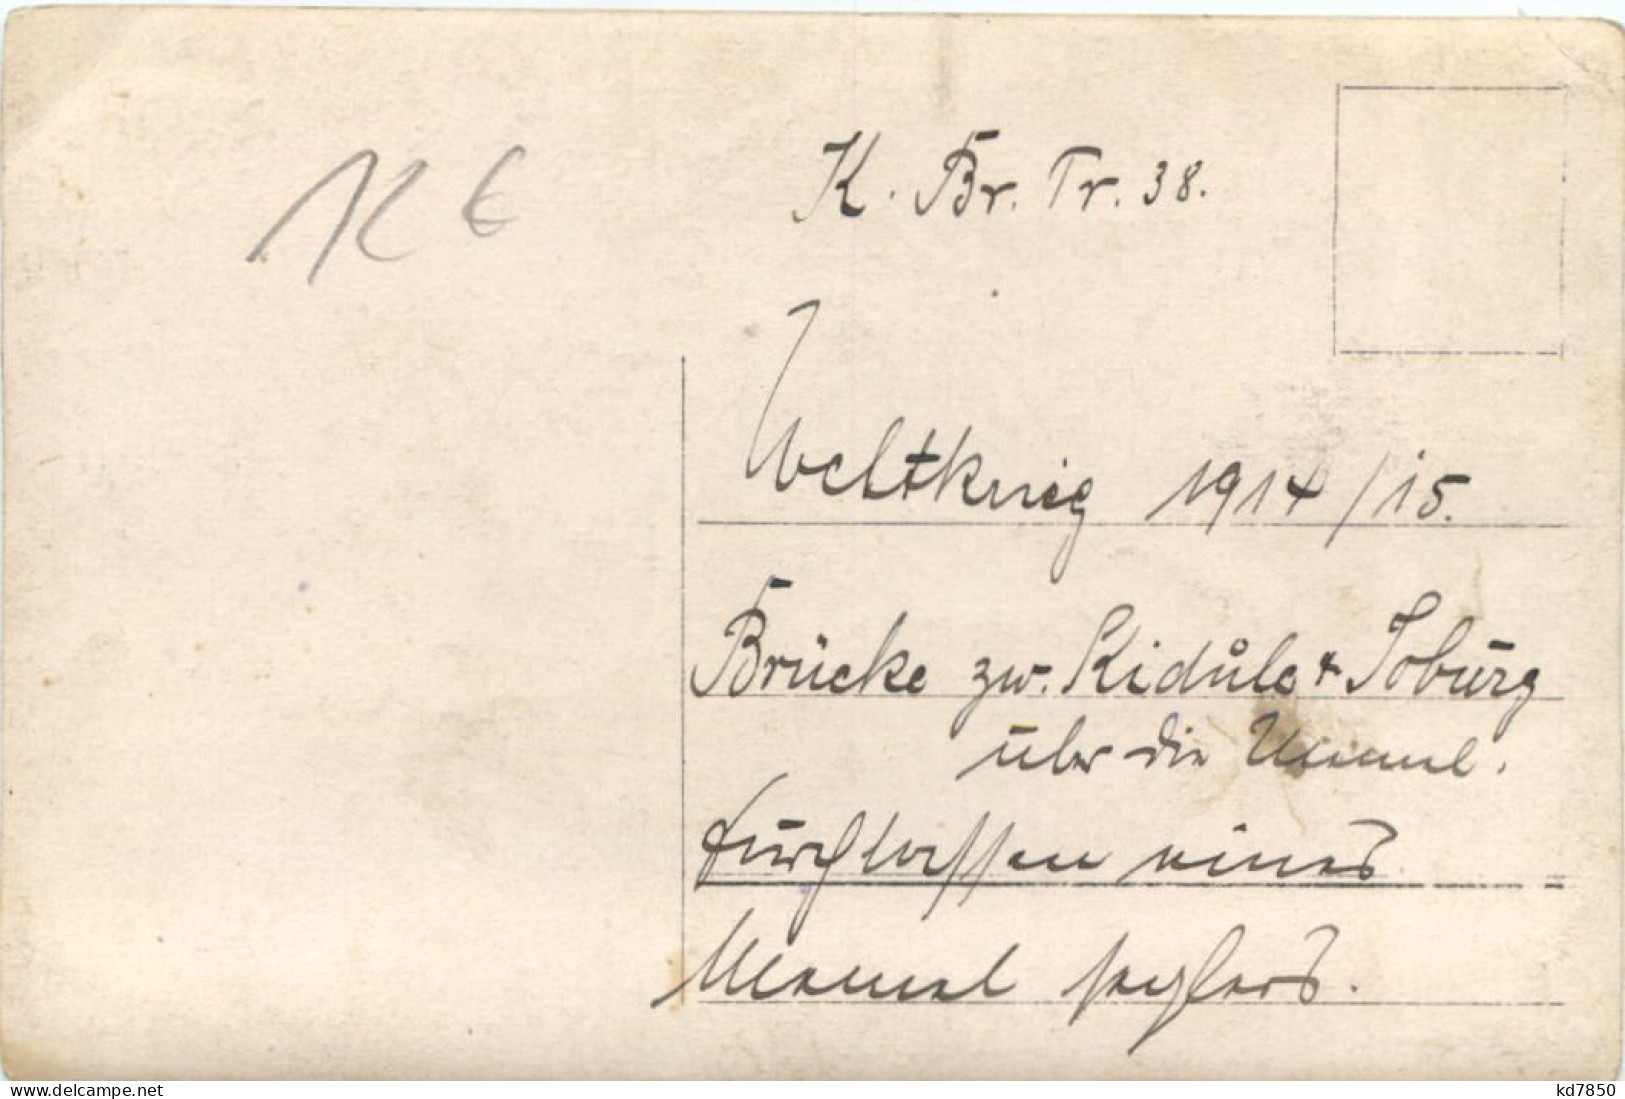 12 €
K. Br. Tr. 38.
Weltkrieg 1914/15.
Brücke zw. Kidůlc + Joburg
über die Memel.
Durchlassen eines
Memel seglers.
www.delcampe.net
kd7850